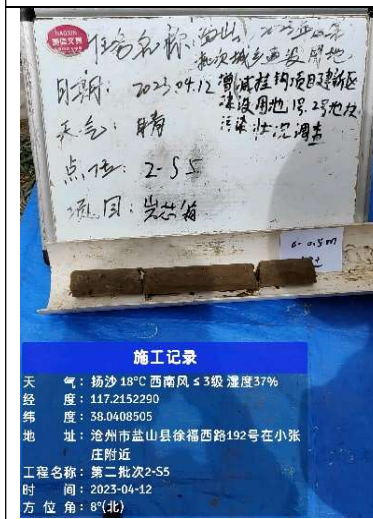 任务名称:盐山县2023年第二
批次城乡建设用地
日期: 2023.04.12 增减挂钩项目建新区
建设用地1号、2号地块
天气: 晴
污染状况调查
点位: 2-S5
项目: 岩芯箱
0-0.5m
施工记录
天 气: 扬沙 18°C 西南风 ≤ 3级 湿度37%
经 度: 117.2152290
纬 度: 38.0408505
地 址: 沧州市盐山县徐福西路192号在小张
庄附近
工程名称: 第二批次2-S5
时 间: 2023-04-12
方 位 角: 8°(北)